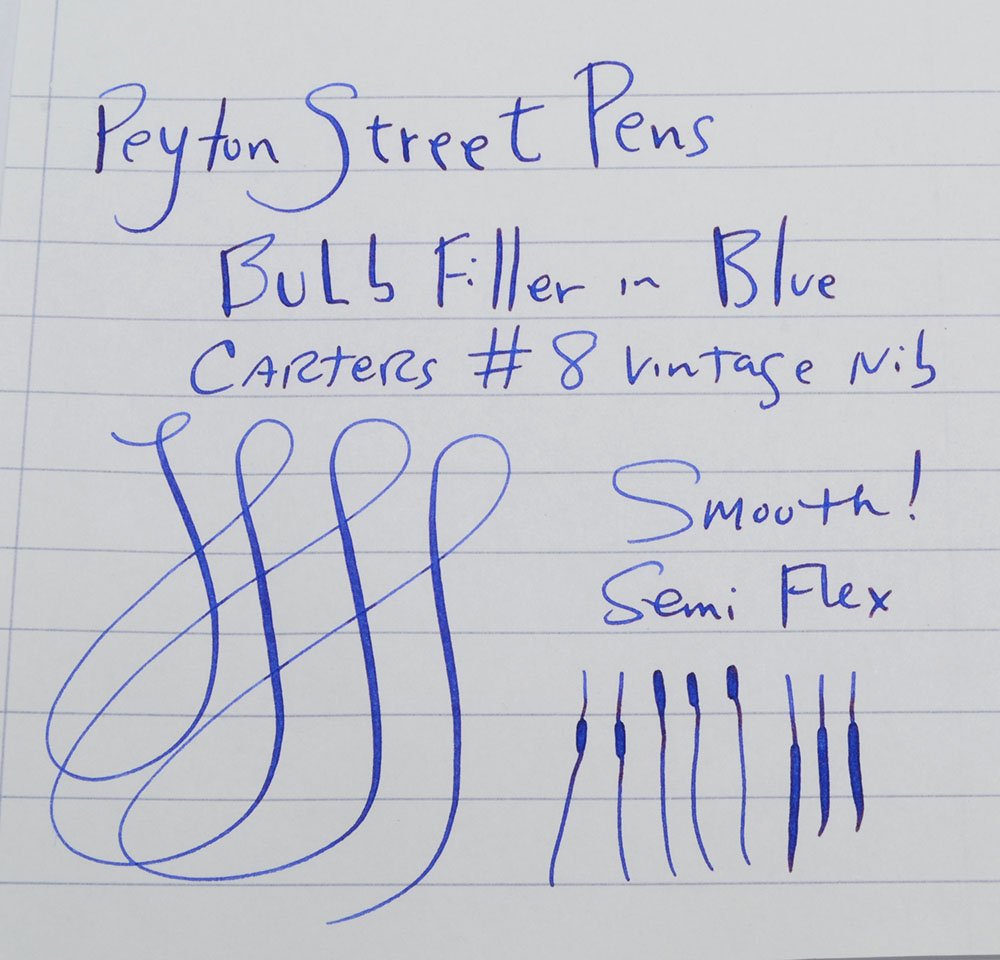 Peyton Street Pens
Bulb Filler in Blue
Carters # 8 Vintage Nib
Smooth!
Semi Flex